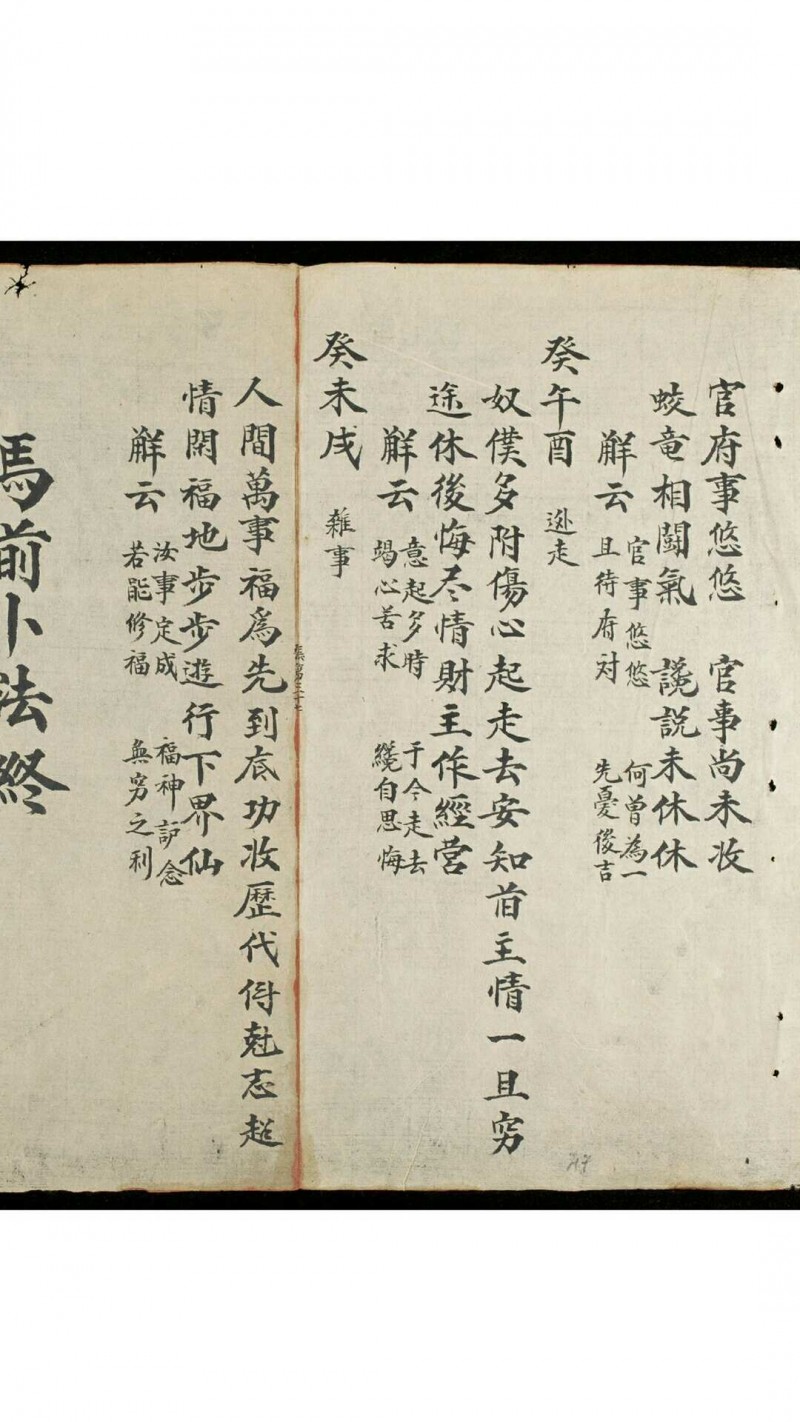 官府事悠悠 官事尚未收
蛟竜相鬪氣 讒説未休休
解云 官事悠悠 何曾為一
且待府対 先憂後吉
癸午酉 逊走
奴僕多附傷心起走去安知首主情一旦穷
途休後悔尽情財主作經营
解云 意起多時 于今走去
竭心苦求 纔自思悔
癸未戌 雜事
人間萬事福為先到底功收歷代得尅志超
情閑福地步步逰行下界仙
解云 汝事定成 福神䕶念
若能修福 無穷之利
馬前卜法終